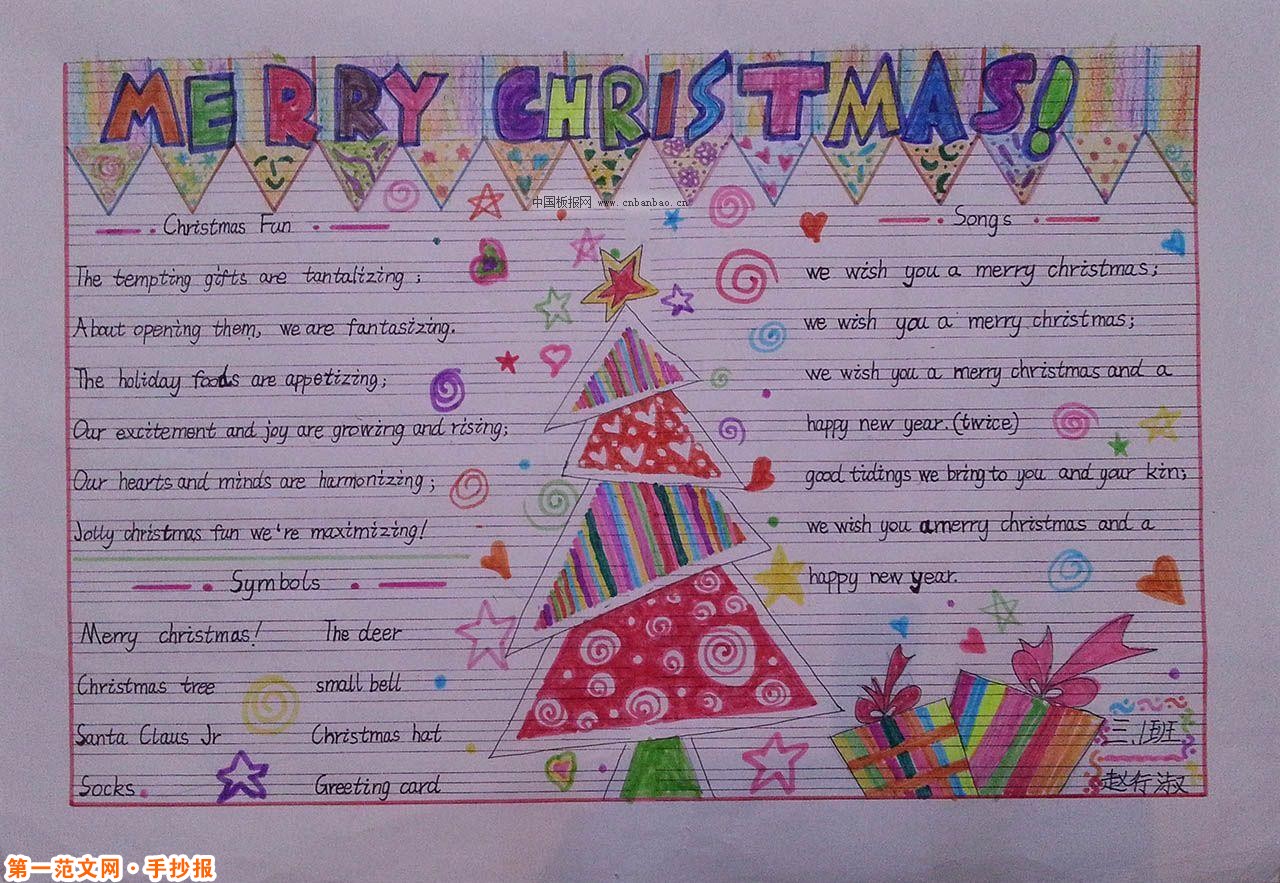 MERRY CHRISTMAS!
中国板报网 www.cnbanbao.cn
Christmas Fun
The tempting gifts are tantalizing ;
About opening them, we are fantasizing.
The holiday foods are appetizing;
Our excitement and joy are growing and rising;
Our hearts and minds are harmonizing ;
Jolly christmas fun we're maximizing!
Symbols
Merry christmas! The deer
Christmas tree small bell
Santa Claus Jr Christmas hat
Socks. Greeting card
Songs
we wish you a merry christmas;
we wish you a merry christmas;
we wish you a merry christmas and a
happy new year.(twice)
good tidings we bring to you and your kin;
we wish you a merry christmas and a
happy new year.
三.1班
赵行淑
第一范文网·手抄报